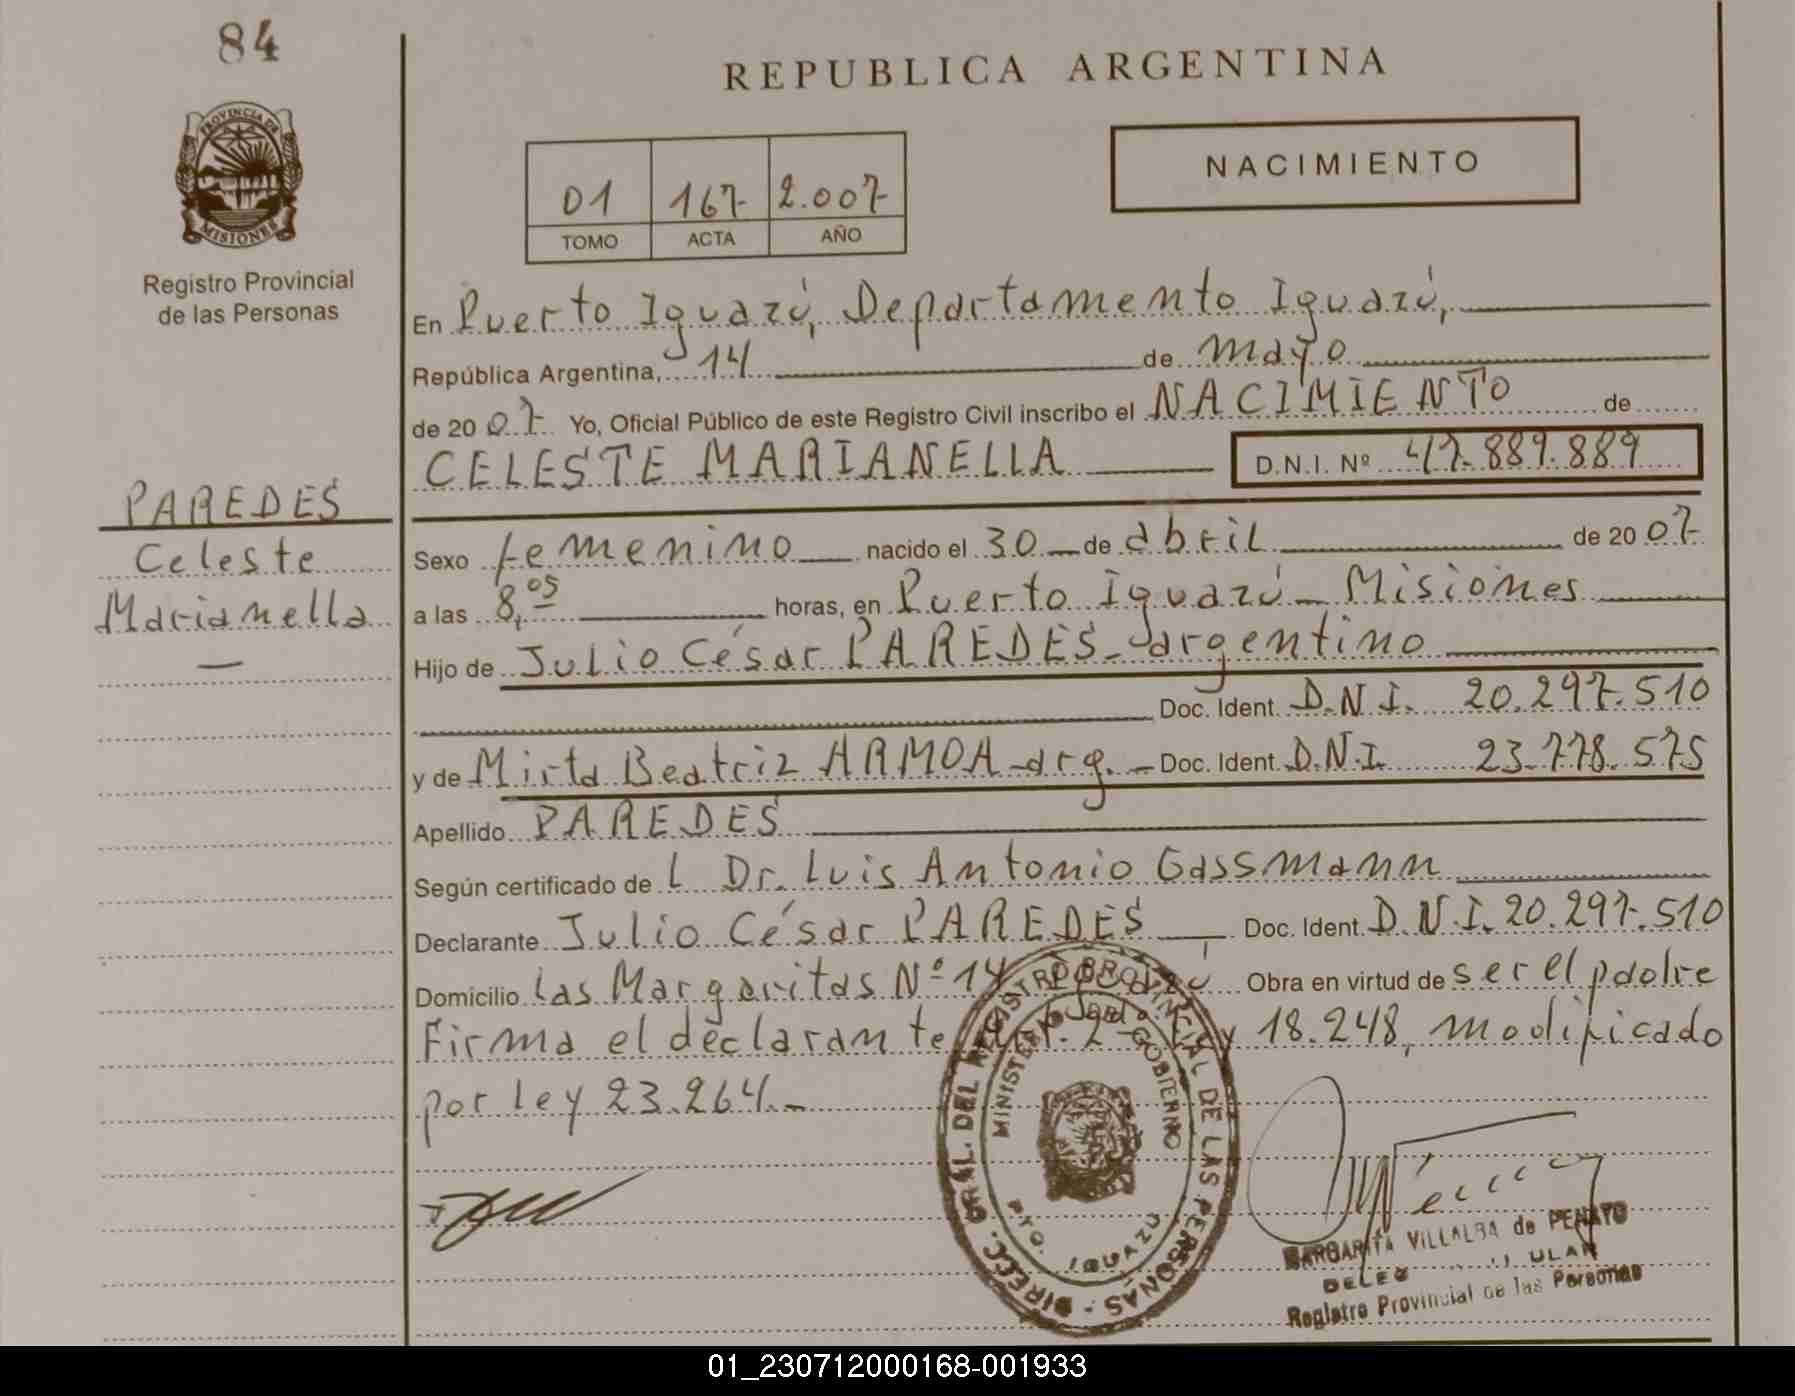 84
PROVINCIA DE
MISIONES
Registro Provincial
de las Personas
PAREDES
Celeste
Marianella
REPUBLICA ARGENTINA
01 167 2.007
TOMO ACTA AÑO
NACIMIENTO
En Puerto Iguazú, Departamento Iguazú,
República Argentina, 14 de mayo
de 2007 Yo, Oficial Público de este Registro Civil inscribo el NACIMIENTO de
CELESTE MARIANELLA D.N.I. Nº 47.889.889
Sexo femenino nacido el 30 de abril de 2007
a las 8,05 horas, en Puerto Iguazú - Misiones
Hijo de Julio César PAREDES - argentino
Doc. Ident. D.N.I. 20.297.510
y de Mirta Beatriz ARMOA - arg. - Doc. Ident. D.N.I. 23.778.575
Apellido PAREDES
Según certificado de L Dr. Luis Antonio Gassmann
Declarante Julio César PAREDES Doc. Ident. D.N.I. 20.297.510
Domicilio Las Margaritas Nº 14 Obra en virtud de ser el padre
Firma el declarante y 18.248, modificado
por ley 23.264.-
DIRECC. GRAL. DEL REGISTRO PROVINCIAL DE LAS PERSONAS
MINISTERIO DE GOBIERNO
PTO. IGUAZU
MARGARITA VILLALBA de PENAYO
Registro Provincial de las Personas
01_230712000168-001933